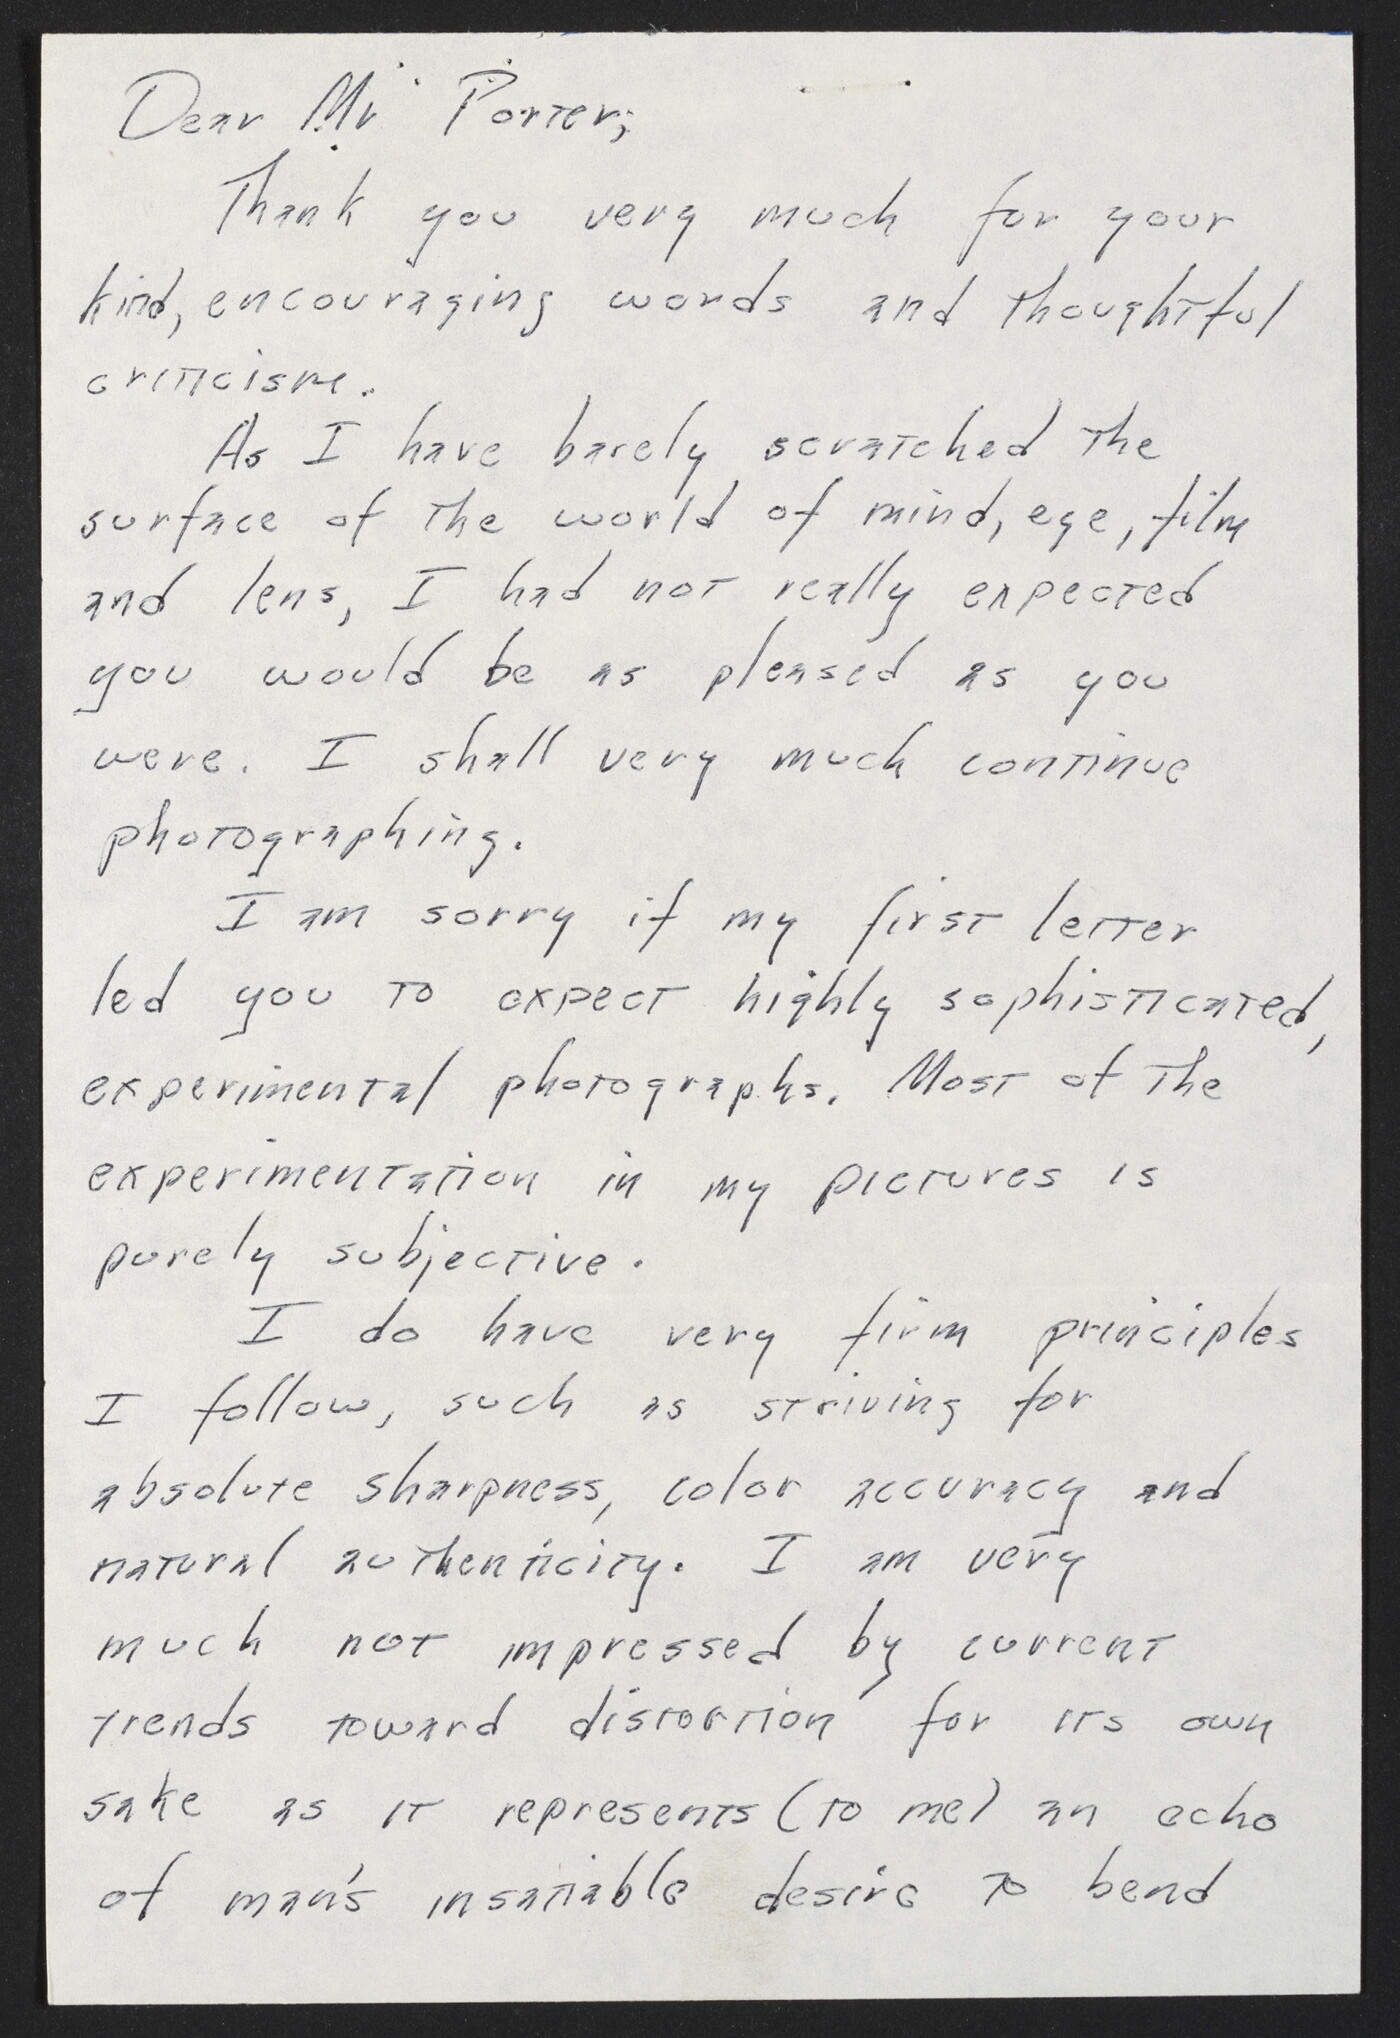 Dear Mr Porter;
Thank you very much for your
kind, encouraging words and thoughtful
criticism.
As I have barely scratched the
surface of the world of mind, eye, film
and lens, I had not really expected
you would be as pleased as you
were. I shall very much continue
photographing.
I am sorry if my first letter
led you to expect highly sophisticated,
experimental photographs. Most of the
experimentation in my pictures is
purely subjective.
I do have very firm principles
I follow, such as striving for
absolute sharpness, color accuracy and
natural authenticity. I am very
much not impressed by current
trends toward distortion for its own
sake as it represents (to me) an echo
of man's insatiable desire to bend